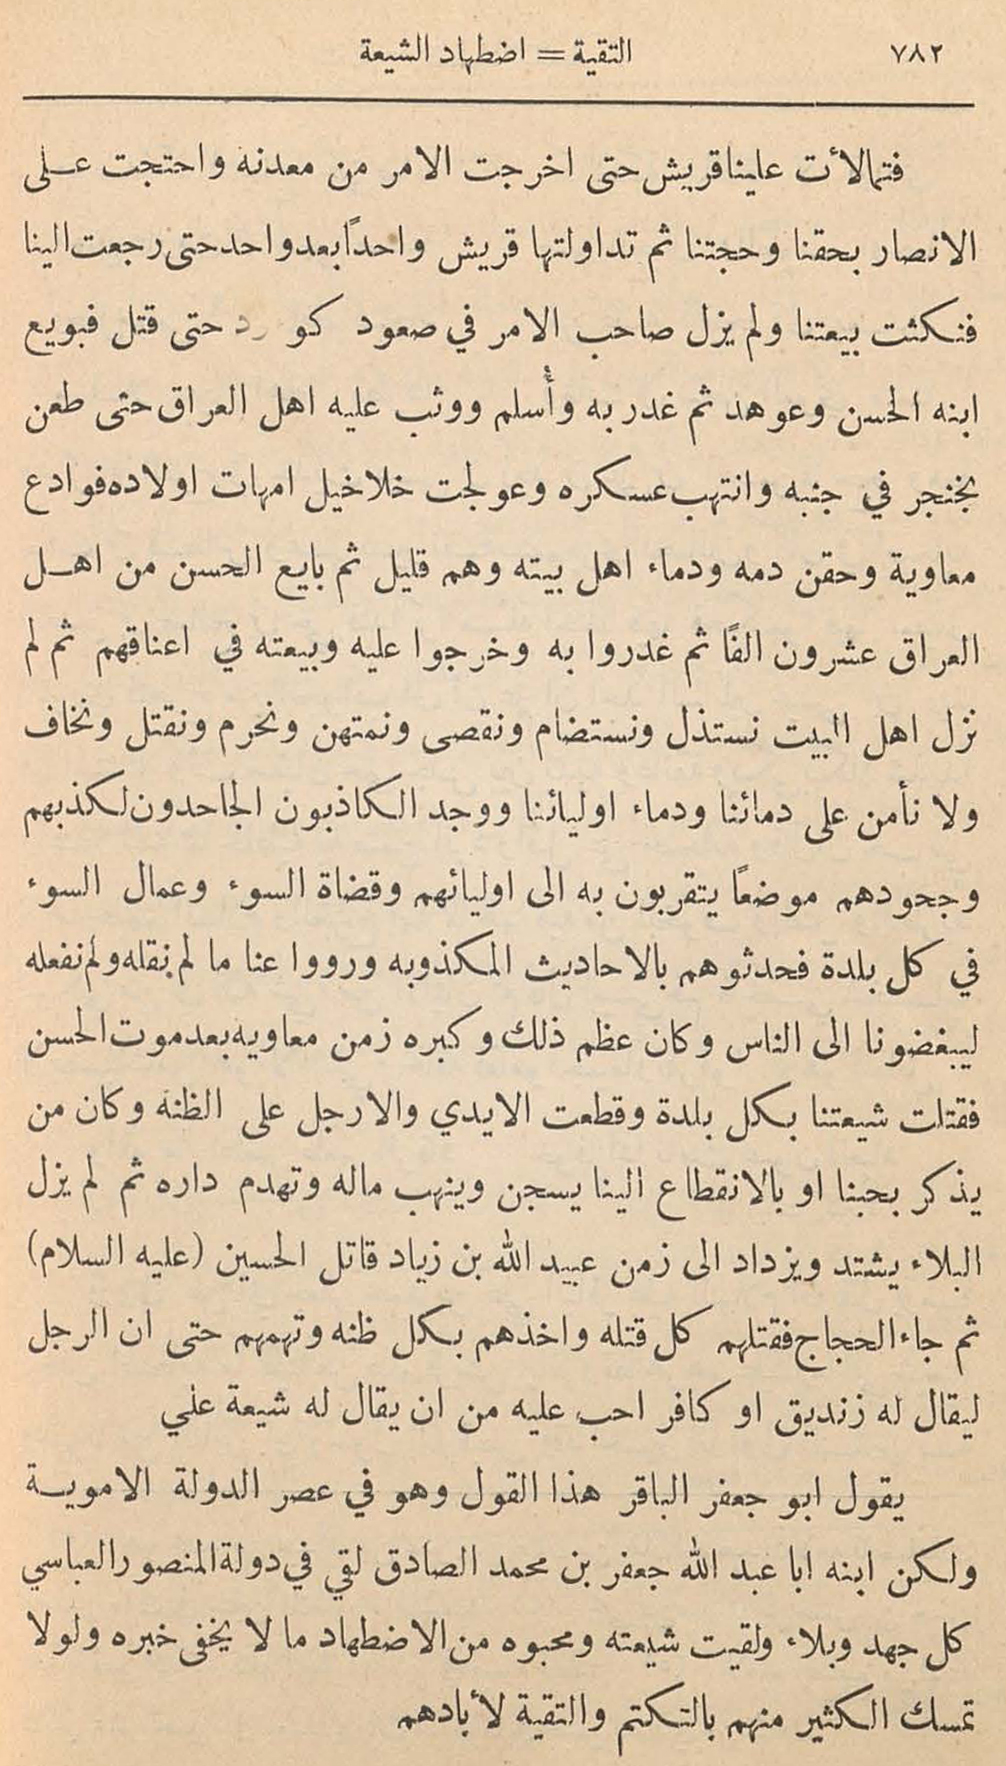 ٧٨٢
التقية = اضطهاد الشيعة
فتمالأت علينا قريش حتى اخرجت الامر من معدنه واحتجت عـلى
الانصار بحقنا وحجتنا ثم تداولتها قريش واحداً بعد واحد حتى رجعت الينا
فنكثت بيعتنا ولم يزل صاحب الامر في صعود حتى قتل فبويع
ابنه الحسن وعوهد ثم غدر به وأسلم ووثب عليه اهل العراق حتى طعن
بخنجر في جنبه وانتهب عسكره وعولجت خلاخيل امهات اولاده فوادع
معاوية وحقن دمه ودماء اهل بيته وهم قليل ثم بايع الحسن من اهـل
العراق عشرون الفاً ثم غدروا به وخرجوا عليه وبيعته في اعناقهم ثم لم
نزل اهل البيت نستذل ونستضام ونقصى ونمتهن ونحرم ونقتل ونخاف
ولا نأمن على دمائنا ودماء اوليائنا ووجد الكاذبون الجاحدون لكذبهم
وجحودهم موضعاً يتقربون به الى اوليائهم وقضاة السوء وعمال السوء
في كل بلدة فحدثوهم بالاحاديث المكذوبه ورووا عنا ما لم نقله ولم نفعله
ليبغضونا الى الناس وكان عظم ذلك وكبره زمن معاويه بعد موت الحسن
فقتلت شيعتنا بكل بلدة وقطعت الايدي والارجل على الظنه وكان من
يذكر بحبنا او بالانقطاع الينا يسجن وينهب ماله وتهدم داره ثم لم يزل
البلاء يشتد ويزداد الى زمن عبيد الله بن زياد قاتل الحسين (عليه السلام)
ثم جاء الحجاج فقتلهم كل قتله واخذهم بكل ظنه وتهمهم حتى ان الرجل
ليقال له زنديق او كافر احب عليه من ان يقال له شيعة علي
يقول ابو جعفر الباقر هذا القول وهو في عصر الدولة الامويـة
ولكن ابنه ابا عبد الله جعفر بن محمد الصادق لقي في دولة المنصور العباسي
كل جهد وبلاء ولقيت شيعته ومحبوه من الاضطهاد ما لا يخفى خبره ولولا
تمسك الكثير منهم بالتكتم والتقية لأبادهم